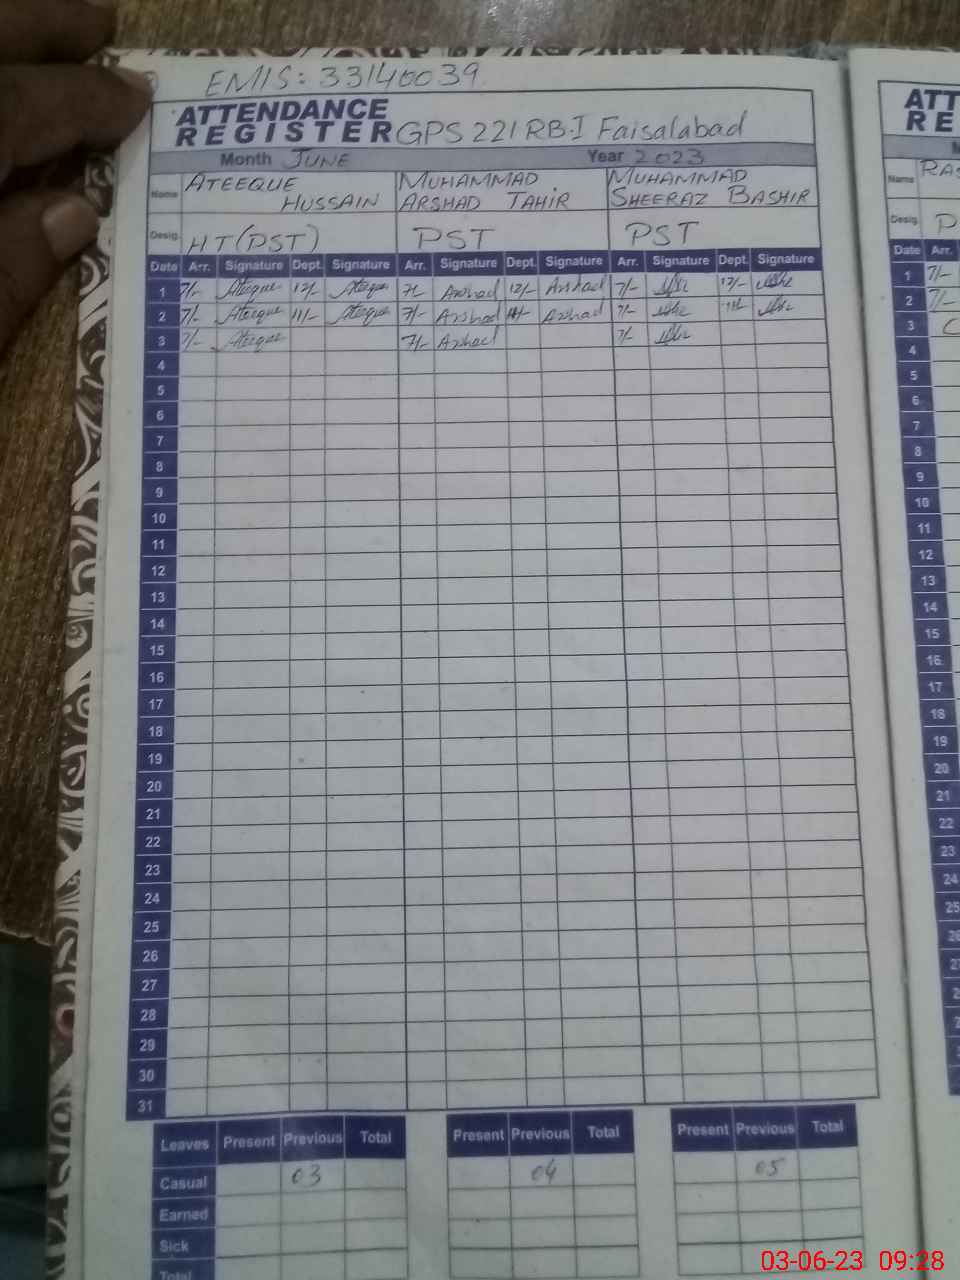 EMIS: 33140039
ATTENDANCE
REGISTER GPS 221 RB-I Faisalabad
Month JUNE Year 2023
Name ATEEQUE HUSSAIN MUHAMMAD ARSHAD TAHIR MUHAMMAD SHEERAZ BASHIR
Desig. HT(PST) PST PST
Date Arr. Signature Dept. Signature Arr. Signature Dept. Signature Arr. Signature Dept. Signature
1 7/- Ateeque 12/- Ateeque 7/- Arshad 12/- Arshad 7/- 12/-
2 7/- Ateeque 11/- Ateeque 7/- Arshad 11/- Arshad 7/- 11/-
3 7/- Ateeque 7/- Arshad 7/-
4
5
6
7
8
9
10
11
12
13
14
15
16
17
18
19
20
21
22
23
24
25
26
27
28
29
30
31
Leaves Present Previous Total Present Previous Total Present Previous Total
Casual 03 04 05
Earned
Sick
Total
ATT
RE
Name RAS
Desig. P
Date Arr.
1 7/-
2 7/-
3 C
4
5
6
7
8
9
10
11
12
13
14
15
16
17
18
19
20
21
22
23
24
25
26
03-06-23 09:28